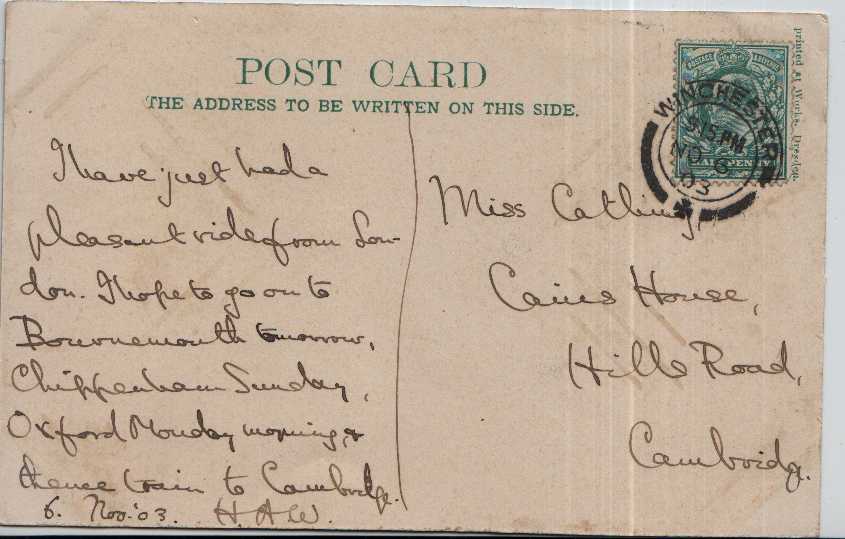 POST CARD
THE ADDRESS TO BE WRITTEN ON THIS SIDE.
I have just had a
pleasant ride from Lon-
don. I hope to go on to
Bournemouth tomorrow,
Chippenham Sunday,
Oxford Monday morning, &
thence train to Cambridge.
6. Nov. '03. H.A.W.
Miss Catling,
Caius House,
Hills Road,
Cambridge.
POSTAGE
HALFPENNY
WINCHESTER
PM
NO 6
03
printed at Works, Dresden.